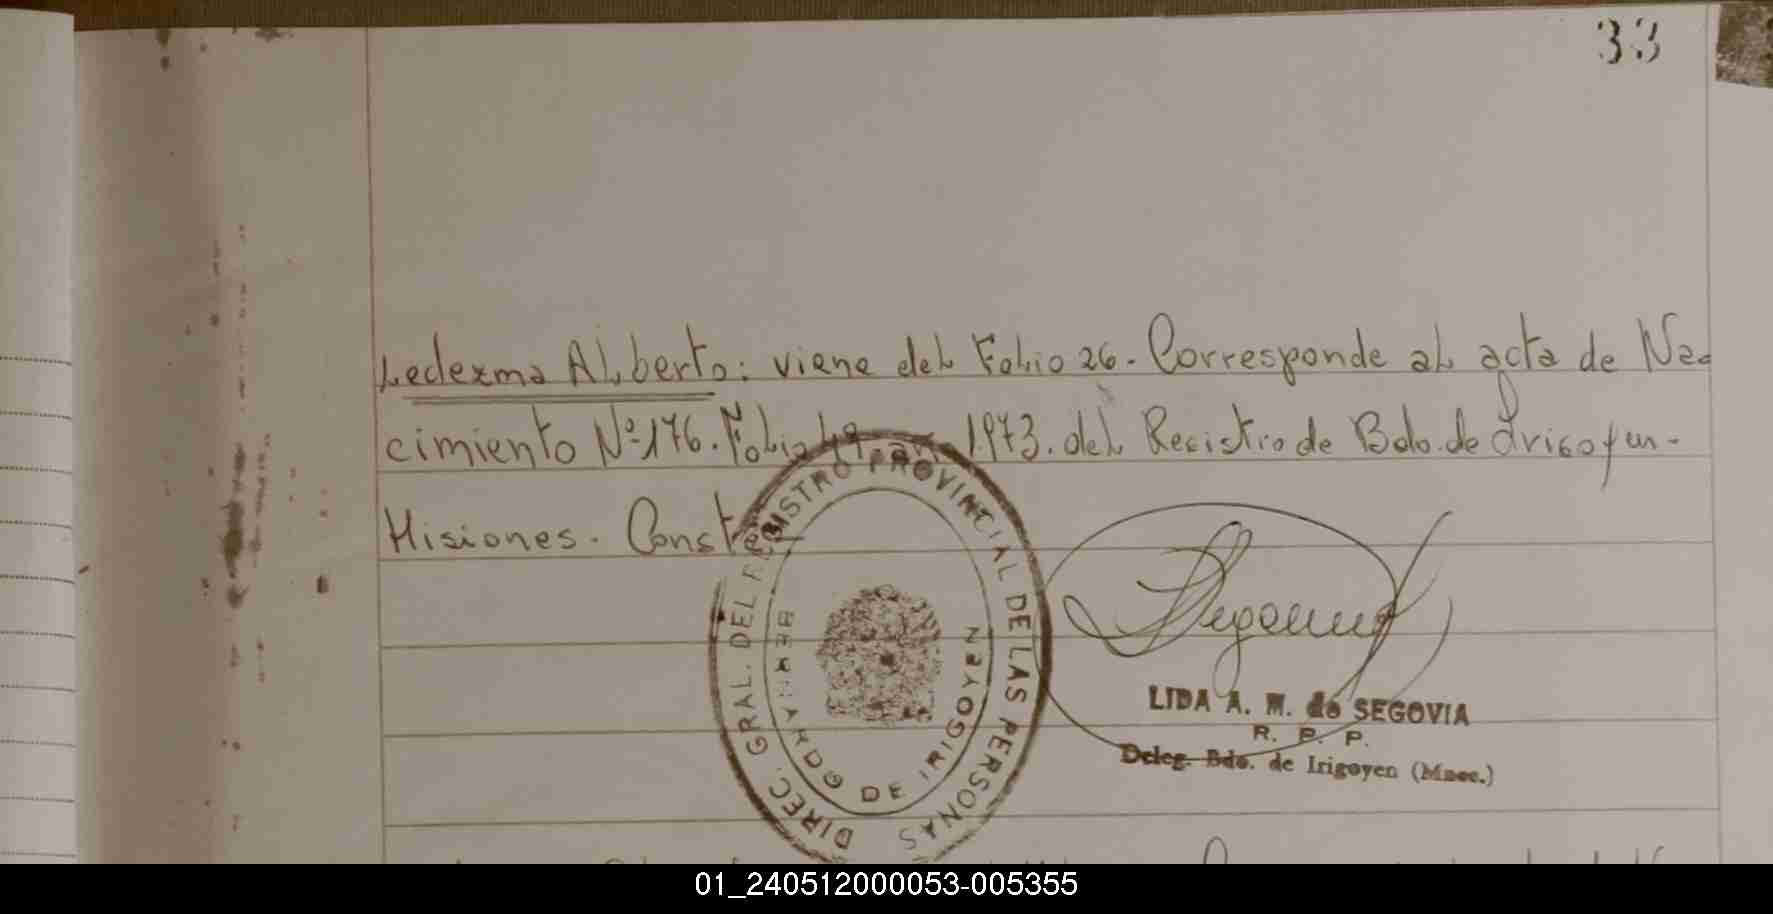 33
Ledezma Alberto: viene del Folio 26. Corresponde al acta de Na-
cimiento Nº 176. Folio 1.973. del Registro de Bdo. de Irigoyen.
Misiones. Conste
DIREC. GRAL. DEL REGISTRO PROVINCIAL DE LAS PERSONAS
BERNARDO DE IRIGOYEN
LIDA A. M. de SEGOVIA
R. P. P.
Deleg. Bdo. de Irigoyen (Mnes.)
01_240512000053-005355